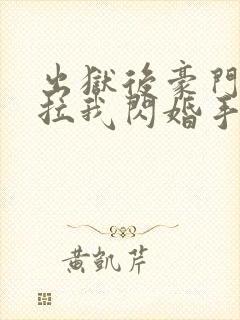 出獄後豪門
拉我閃婚手
黃凱芹